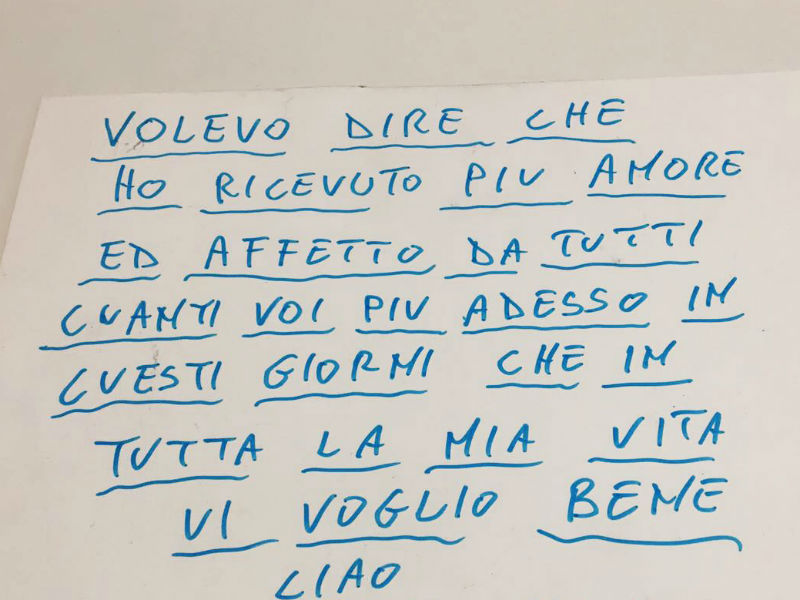 VOLEVO DIRE CHE
HO RICEVUTO PIU AMORE
ED AFFETTO DA TUTTI
CUANTI VOI PIU ADESSO IN
CUESTI GIORNI CHE IN
TUTTA LA MIA VITA
VI VOGLIO BENE
CIAO